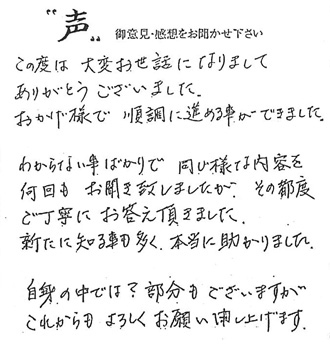 "声" 御意見・感想をお聞かせ下さい
この度は 大変お世話になりまして
ありがとうございました。
おかげ様で 順調に進める事ができました。
わからない事ばかりで 同じ様な内容を
何回も お聞き致しましたが、その都度
ご丁寧に お答え頂きました。
新たに知る事も多く、本当に助かりました。
自身の中では?部分もございますが
これからも よろしくお願い申し上げます。